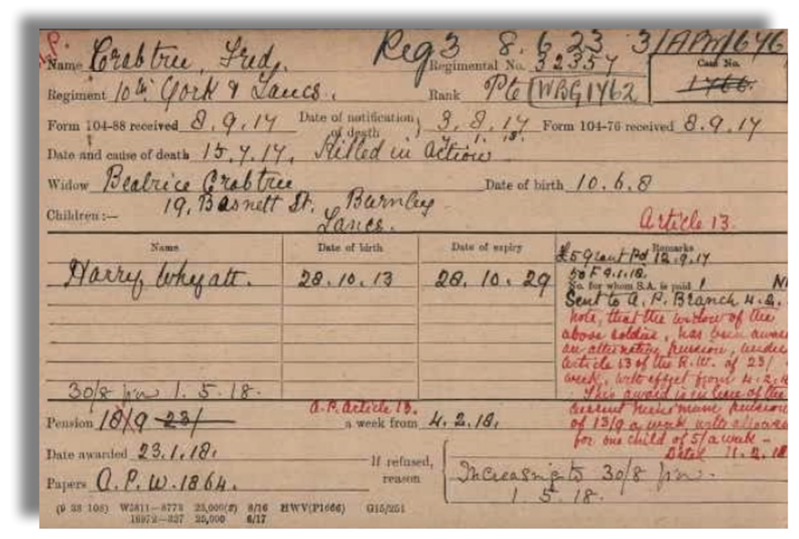 Reg 3 8.6.23 3/APW1646
Name Crabtree, Fred. Regimental No. 32357 Case No.
Regiment 10th York & Lancs. Rank Pte WBG1462 1766
Form 104-88 received 8.9.17 Date of notification of death 3.8.17 Form 104-76 received 8.9.17
Date and cause of death 15.7.17. Killed in action
Widow Beatrice Crabtree Date of birth 10.6.8
Children:— 19, Basnett St. Burnley
Lancs. Article 13.
Name Date of birth Date of expiry Remarks
£5 Grant Pd 12.9.17
50 F 9.1.18.
Harry Whyatt. 28.10.13 28.10.29 No. for whom S.A. is paid 1
Sent to A.P. Branch 4.2.
Note, that the widow of the
above soldier, has been awa
an alternative pension, under
Article 13 of the R.W. of 23/
week, with effect from 4.2.18
This award is in lieu of the
minimum pension
of 13/9 a week, with allowance
for one child of 5/ a week –
Dated 11.2.18
30/8 pw 1.5.18.
Pension 18/9 23/ A.P. Article 13. a week from 4.2.18.
Date awarded 23.1.18. If refused, reason
Increasing to 30/8 pw.
1.5.18.
Papers A.P.W. 1864.
(9 28 108) W2811—8773 25,000(2) 8/16 HWV(P1666) G15/251
16972—837 25,000 6/17